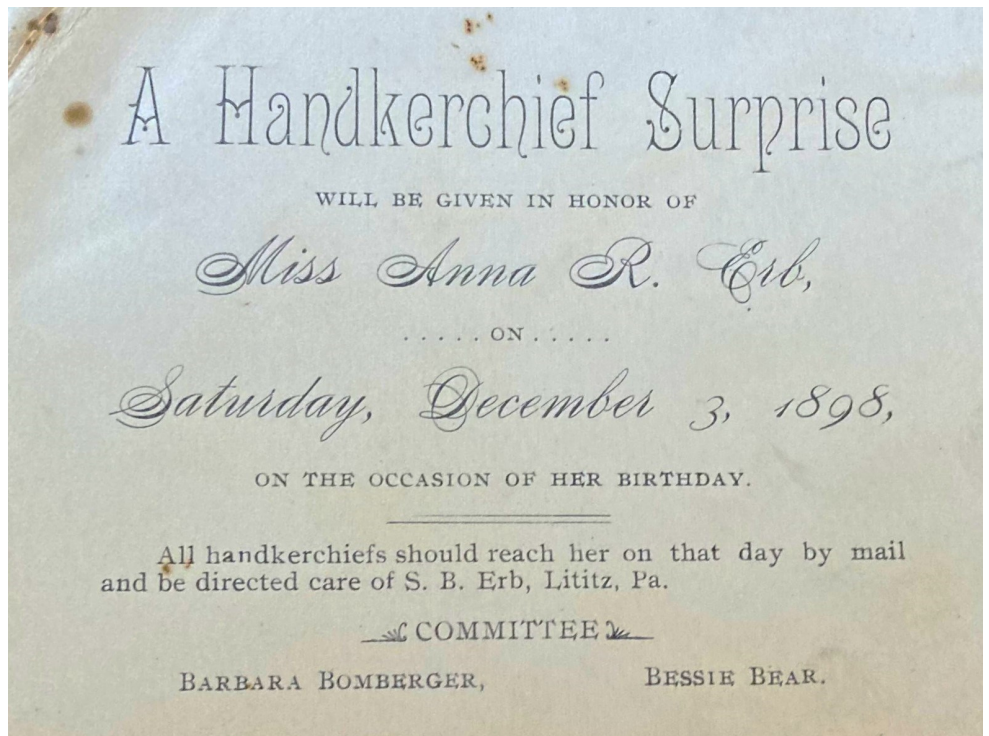 A Handkerchief Surprise
WILL BE GIVEN IN HONOR OF
Miss Anna R. Erb,
.....ON.....
Saturday, December 3, 1898,
ON THE OCCASION OF HER BIRTHDAY.
All handkerchiefs should reach her on that day by mail
and be directed care of S. B. Erb, Lititz, Pa.
COMMITTEE
BARBARA BOMBERGER, BESSIE BEAR.